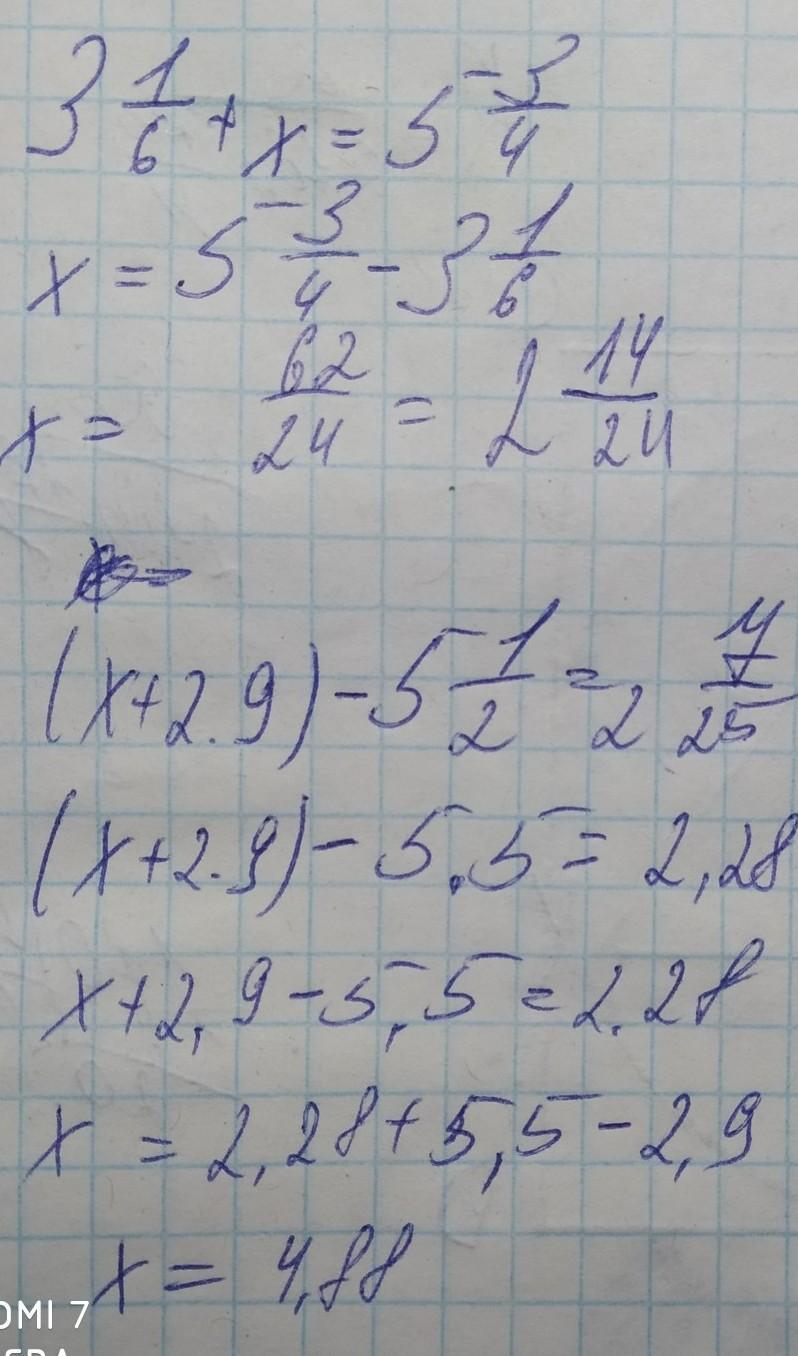 3 1/6 + x = 5 3/4
x = 5 3/4 - 3 1/6
x = 62/24 = 2 14/24
(x+2.9) - 5 1/2 = 2 7/25
(x+2.9) - 5.5 = 2,28
x+2,9-5,5=2.28
x = 2,28+5,5-2,9
x = 4,88
OMI 7